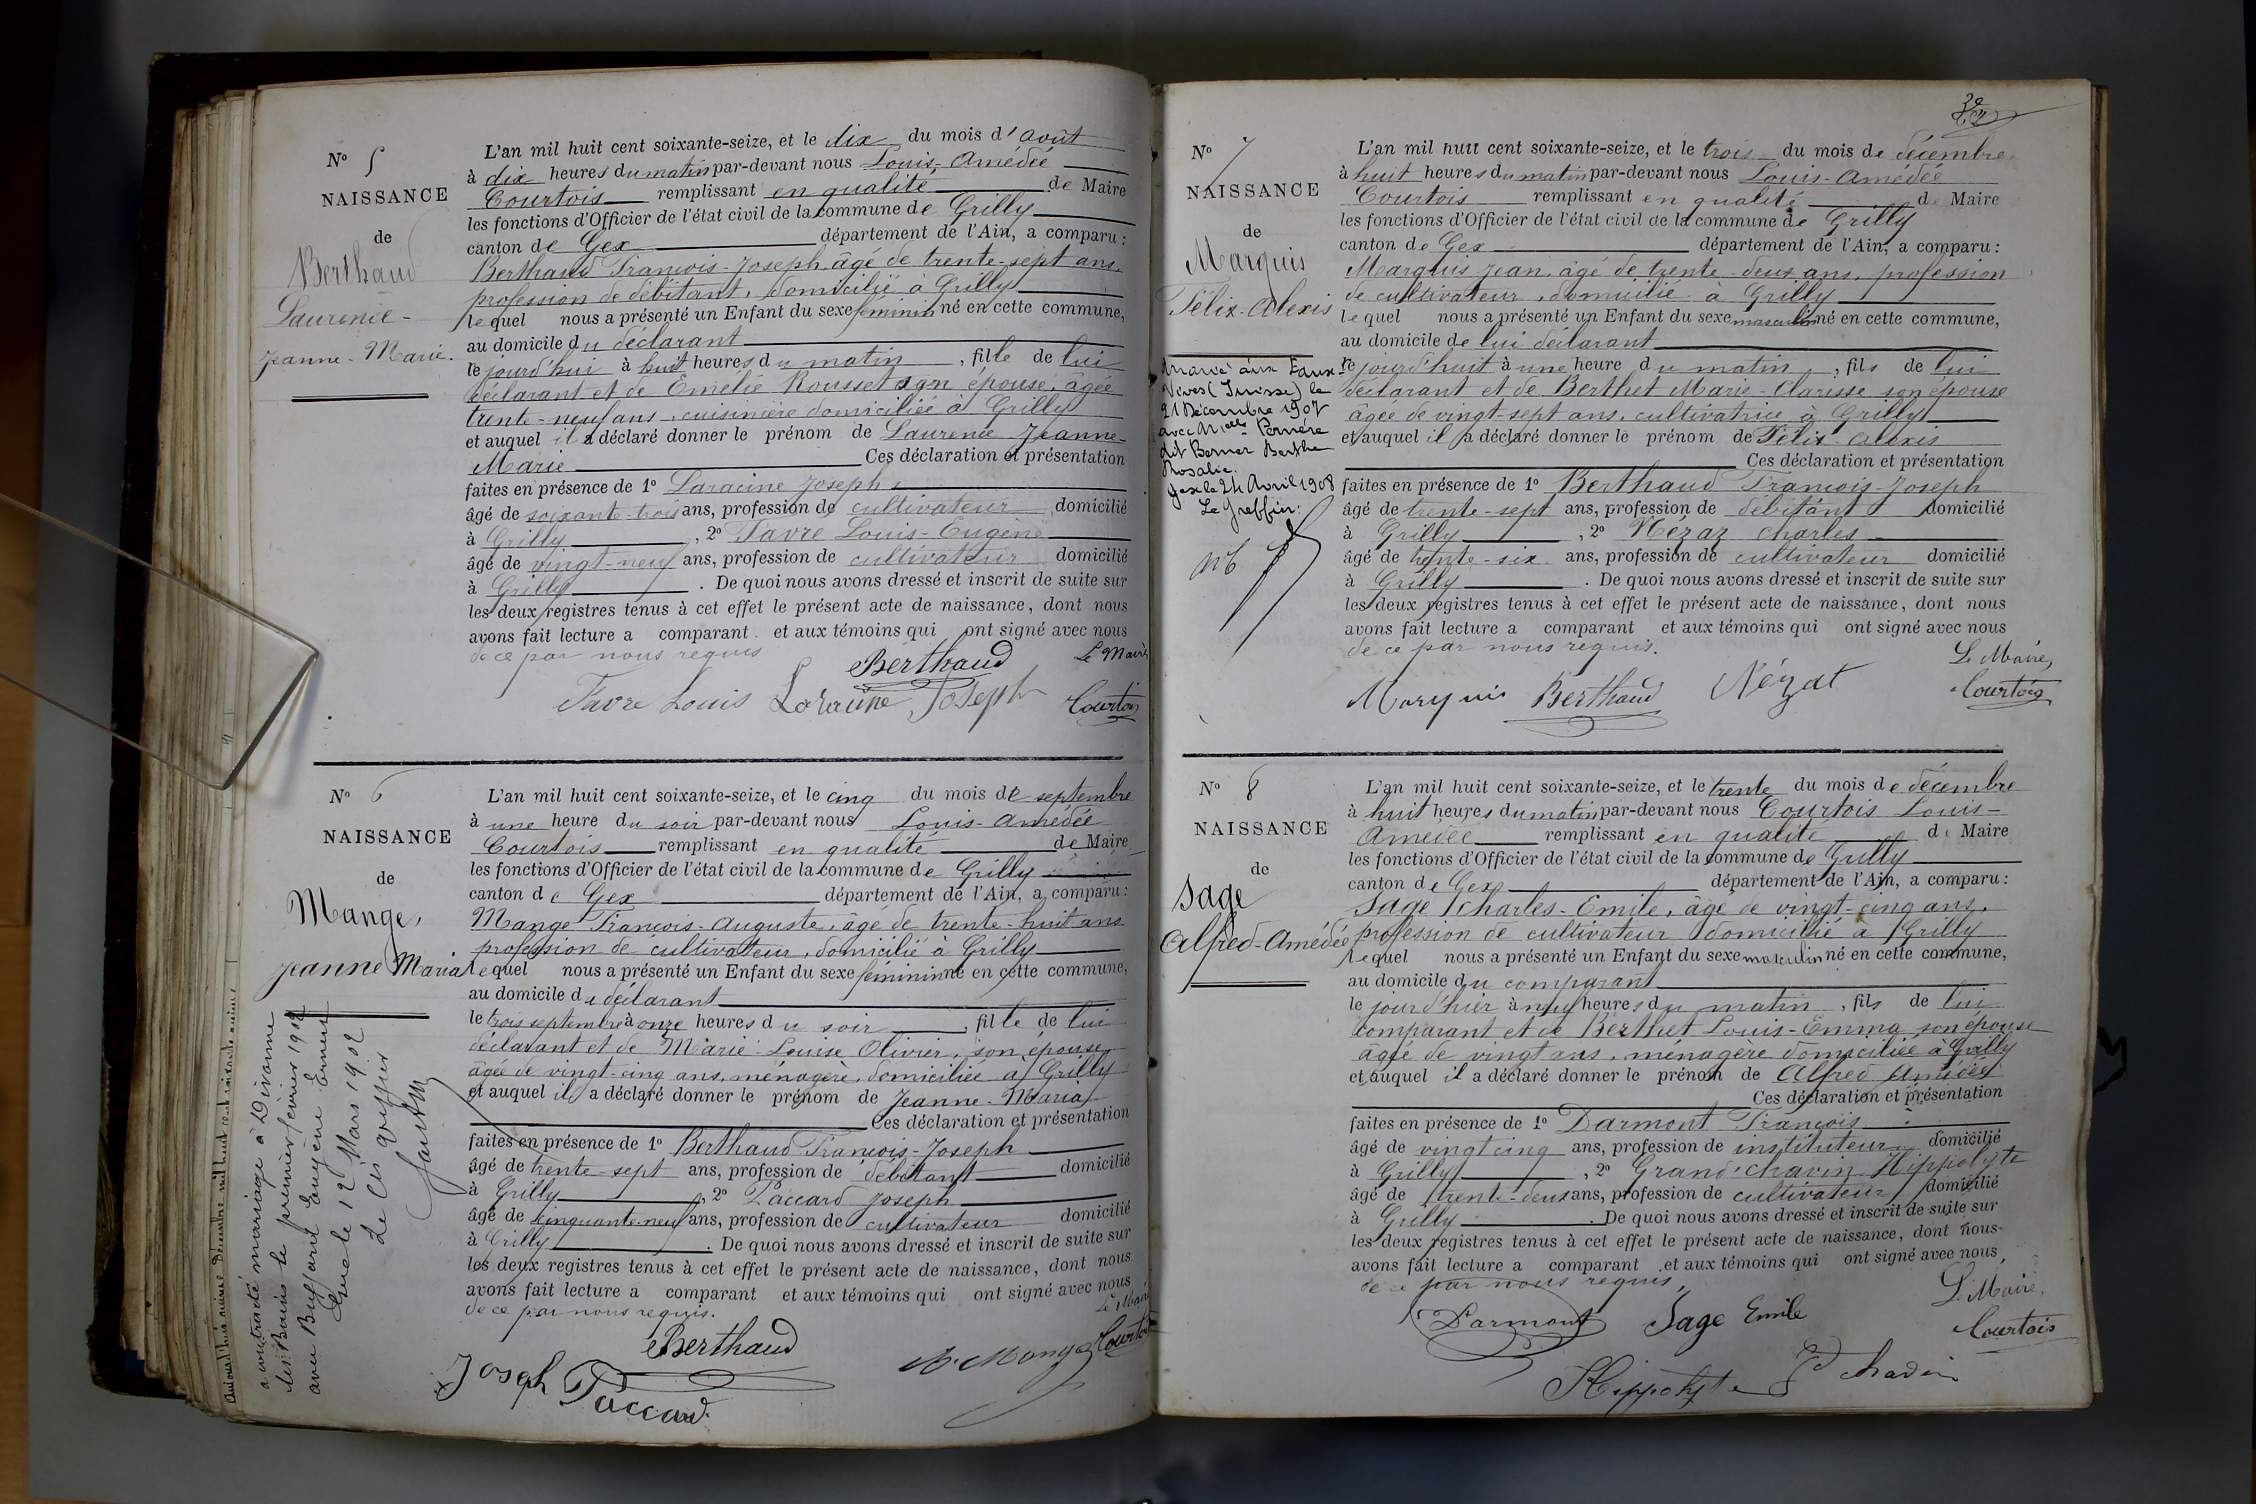 N° 5
NAISSANCE
de
Berthaud
Laurence-
Jeanne-Marie.
L'an mil huit cent soixante-seize, et le dix du mois d'août
à dix heures du matin par-devant nous Louis-Amédée
Courtois remplissant en qualité de Maire
les fonctions d'Officier de l'état civil de la commune de Grilly
canton de Gex département de l'Ain, a comparu :
Berthaud François-Joseph, âgé de trente-sept ans,
profession de débitant, domicilié à Grilly
lequel nous a présenté un Enfant du sexe féminin né en cette commune,
au domicile du déclarant
le jourd'hui à huit heures du matin, fille de lui
déclarant et de Emélie Rousset son épouse, âgée
trente-neuf ans, cuisinière domiciliée à Grilly
et auquel il a déclaré donner le prénom de Laurence Jeanne-
Marie Ces déclaration et présentation
faites en présence de 1° Laracine Joseph
âgé de soixante-trois ans, profession de cultivateur domicilié
à Grilly, 2° Favre Louis-Eugène
âgé de vingt-neuf ans, profession de cultivateur domicilié
à Grilly. De quoi nous avons dressé et inscrit de suite sur
les deux registres tenus à cet effet le présent acte de naissance, dont nous
avons fait lecture a comparant et aux témoins qui ont signé avec nous
de ce par nous requis
Berthaud Le Maire
Favre Louis Laracine Joseph Courtois
N° 6
NAISSANCE
de
Mange,
Jeanne Maria
a contracté mariage à Divonne
les Bains le premier février 1902
avec Buffard Eugène Ernest
Gex le 12 Mars 1902
Le Cis Greffier
L'an mil huit cent soixante-seize, et le cinq du mois de septembre
à une heure du soir par-devant nous Louis-Amédée
Courtois remplissant en qualité de Maire
les fonctions d'Officier de l'état civil de la commune de Grilly
canton de Gex département de l'Ain, a comparu :
Mange François-Auguste, âgé de trente-huit ans
profession de cultivateur, domicilié à Grilly
lequel nous a présenté un Enfant du sexe féminin né en cette commune,
au domicile du déclarant
le trois septembre à onze heures du soir, fille de lui
déclarant et de Marie-Louise Olivier, son épouse
âgée de vingt-cinq ans, ménagère, domiciliée à Grilly
et auquel il a déclaré donner le prénom de Jeanne-Maria
Ces déclaration et présentation
faites en présence de 1° Berthaud François-Joseph
âgé de trente-sept ans, profession de débitant domicilié
à Grilly, 2° Paccard Joseph
âgé de cinquante-neuf ans, profession de cultivateur domicilié
à Grilly. De quoi nous avons dressé et inscrit de suite sur
les deux registres tenus à cet effet le présent acte de naissance, dont nous
avons fait lecture a comparant et aux témoins qui ont signé avec nous
de ce par nous requis.
Le Maire
Berthaud Courtois
Joseph Paccard. Mange
N° 7
NAISSANCE
de
Marquis
Félix-Alexis
Marié aux Eaux
Vives (Suisse) le
21 Décembre 1907
avec Melle
dit Berner Berthe
Rosalie.
Gex le 24 Avril 1908
Le Greffier:
L'an mil huit cent soixante-seize, et le trois du mois de décembre
à huit heures du matin par-devant nous Louis-Amédée
Courtois remplissant en qualité de Maire
les fonctions d'Officier de l'état civil de la commune de Grilly
canton de Gex département de l'Ain, a comparu :
Marquis Jean, âgé de trente-deux ans, profession
de cultivateur, domicilié à Grilly
lequel nous a présenté un Enfant du sexe masculin né en cette commune,
au domicile de lui déclarant
le jourd'huit à une heure du matin, fils de lui
déclarant et de Berthet Marie-Clarisse son épouse
âgée de vingt-sept ans, cultivatrice à Grilly
et auquel il a déclaré donner le prénom de Félix-Alexis
Ces déclaration et présentation
faites en présence de 1° Berthaud François-Joseph
âgé de trente-sept ans, profession de débitant domicilié
à Grilly, 2° Nézaz Charles
âgé de trente-six ans, profession de cultivateur domicilié
à Grilly. De quoi nous avons dressé et inscrit de suite sur
les deux registres tenus à cet effet le présent acte de naissance, dont nous
avons fait lecture a comparant et aux témoins qui ont signé avec nous
de ce par nous requis.
Le Maire,
Marquis Berthaud Nézat Courtois
N° 8
NAISSANCE
de
Sage
Alfred-Amédée
L'an mil huit cent soixante-seize, et le trente du mois de décembre
à huit heures du matin par-devant nous Courtois Louis-
Amédée remplissant en qualité de Maire
les fonctions d'Officier de l'état civil de la commune de Grilly
canton de Gex département de l'Ain, a comparu :
Sage Charles-Emile, âgé de vingt-cinq ans,
profession de cultivateur domicilié à Grilly
lequel nous a présenté un Enfant du sexe masculin né en cette commune,
au domicile du comparant
le jour d'hier à neuf heures du matin, fils de lui
comparant et de Berthet Louis-Emma son épouse
âgée de vingt ans, ménagère domiciliée à Grilly
et auquel il a déclaré donner le prénom de Alfred Amédée
Ces déclaration et présentation
faites en présence de 1° Darmont François
âgé de vingt cinq ans, profession de instituteur domicilié
à Grilly, 2° Grand'chavin Hippolyte
âgé de trente-deux ans, profession de cultivateur domicilié
à Grilly. De quoi nous avons dressé et inscrit de suite sur
les deux registres tenus à cet effet le présent acte de naissance, dont nous
avons fait lecture a comparant et aux témoins qui ont signé avec nous,
de ce par nous requis,
Le Maire,
Darmont Sage Emile Courtois
Hippolyte Gd chavin